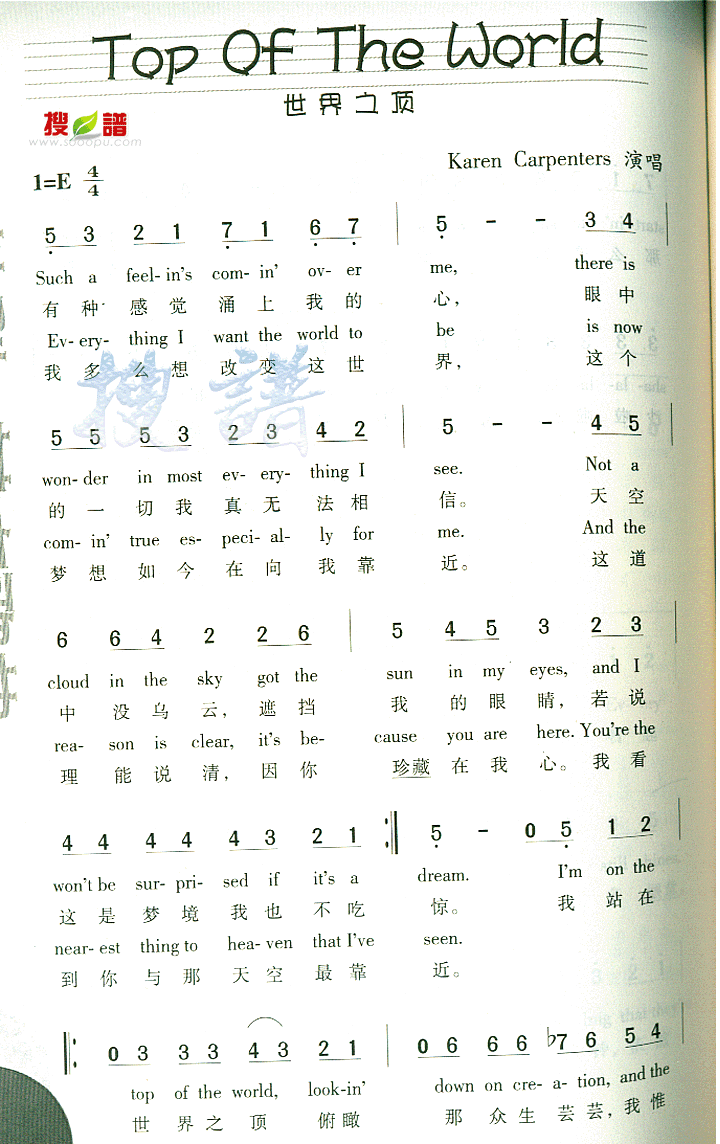 Top Of The World
世界之顶
搜谱
www.sooopu.com
Karen Carpenters 演唱
1=E 4/4
5 3 2 1 7 1 6 7 | 5 - - 3 4 |
Such a feel-in's com-in' ov-er me, there is
有种感觉涌上我的心，眼中
Ev-ery-thing I want the world to be is now
我多么想改变这世界，这个
5 5 5 3 2 3 4 2 | 5 - - 4 5 |
won-der in most ev-ery-thing I see. Not a
的一切我真无法相信。天空
com-in' true es-peci-al-ly for me. And the
梦想如今在向我靠近。这道
6 6 4 2 2 6 | 5 4 5 3 2 3 |
cloud in the sky got the sun in my eyes, and I
中没乌云，遮挡我的眼睛，若说
rea-son is clear, it's be-cause you are here. You're the
理能说清，因你珍藏在我心。我看
4 4 4 4 4 3 2 1 :| 5 - 0 5 1 2 |
won't be sur-pri-sed if it's a dream. I'm on the
这是梦境我也不吃惊。我站在
near-est thing to hea-ven that I've seen.
到你与那天空最靠近。
|: 0 3 3 3 4 3 2 1 | 0 6 6 6 ♭7 6 5 4 |
top of the world, look-in' down on cre-a-tion, and the
世界之顶俯瞰那众生芸芸，我惟